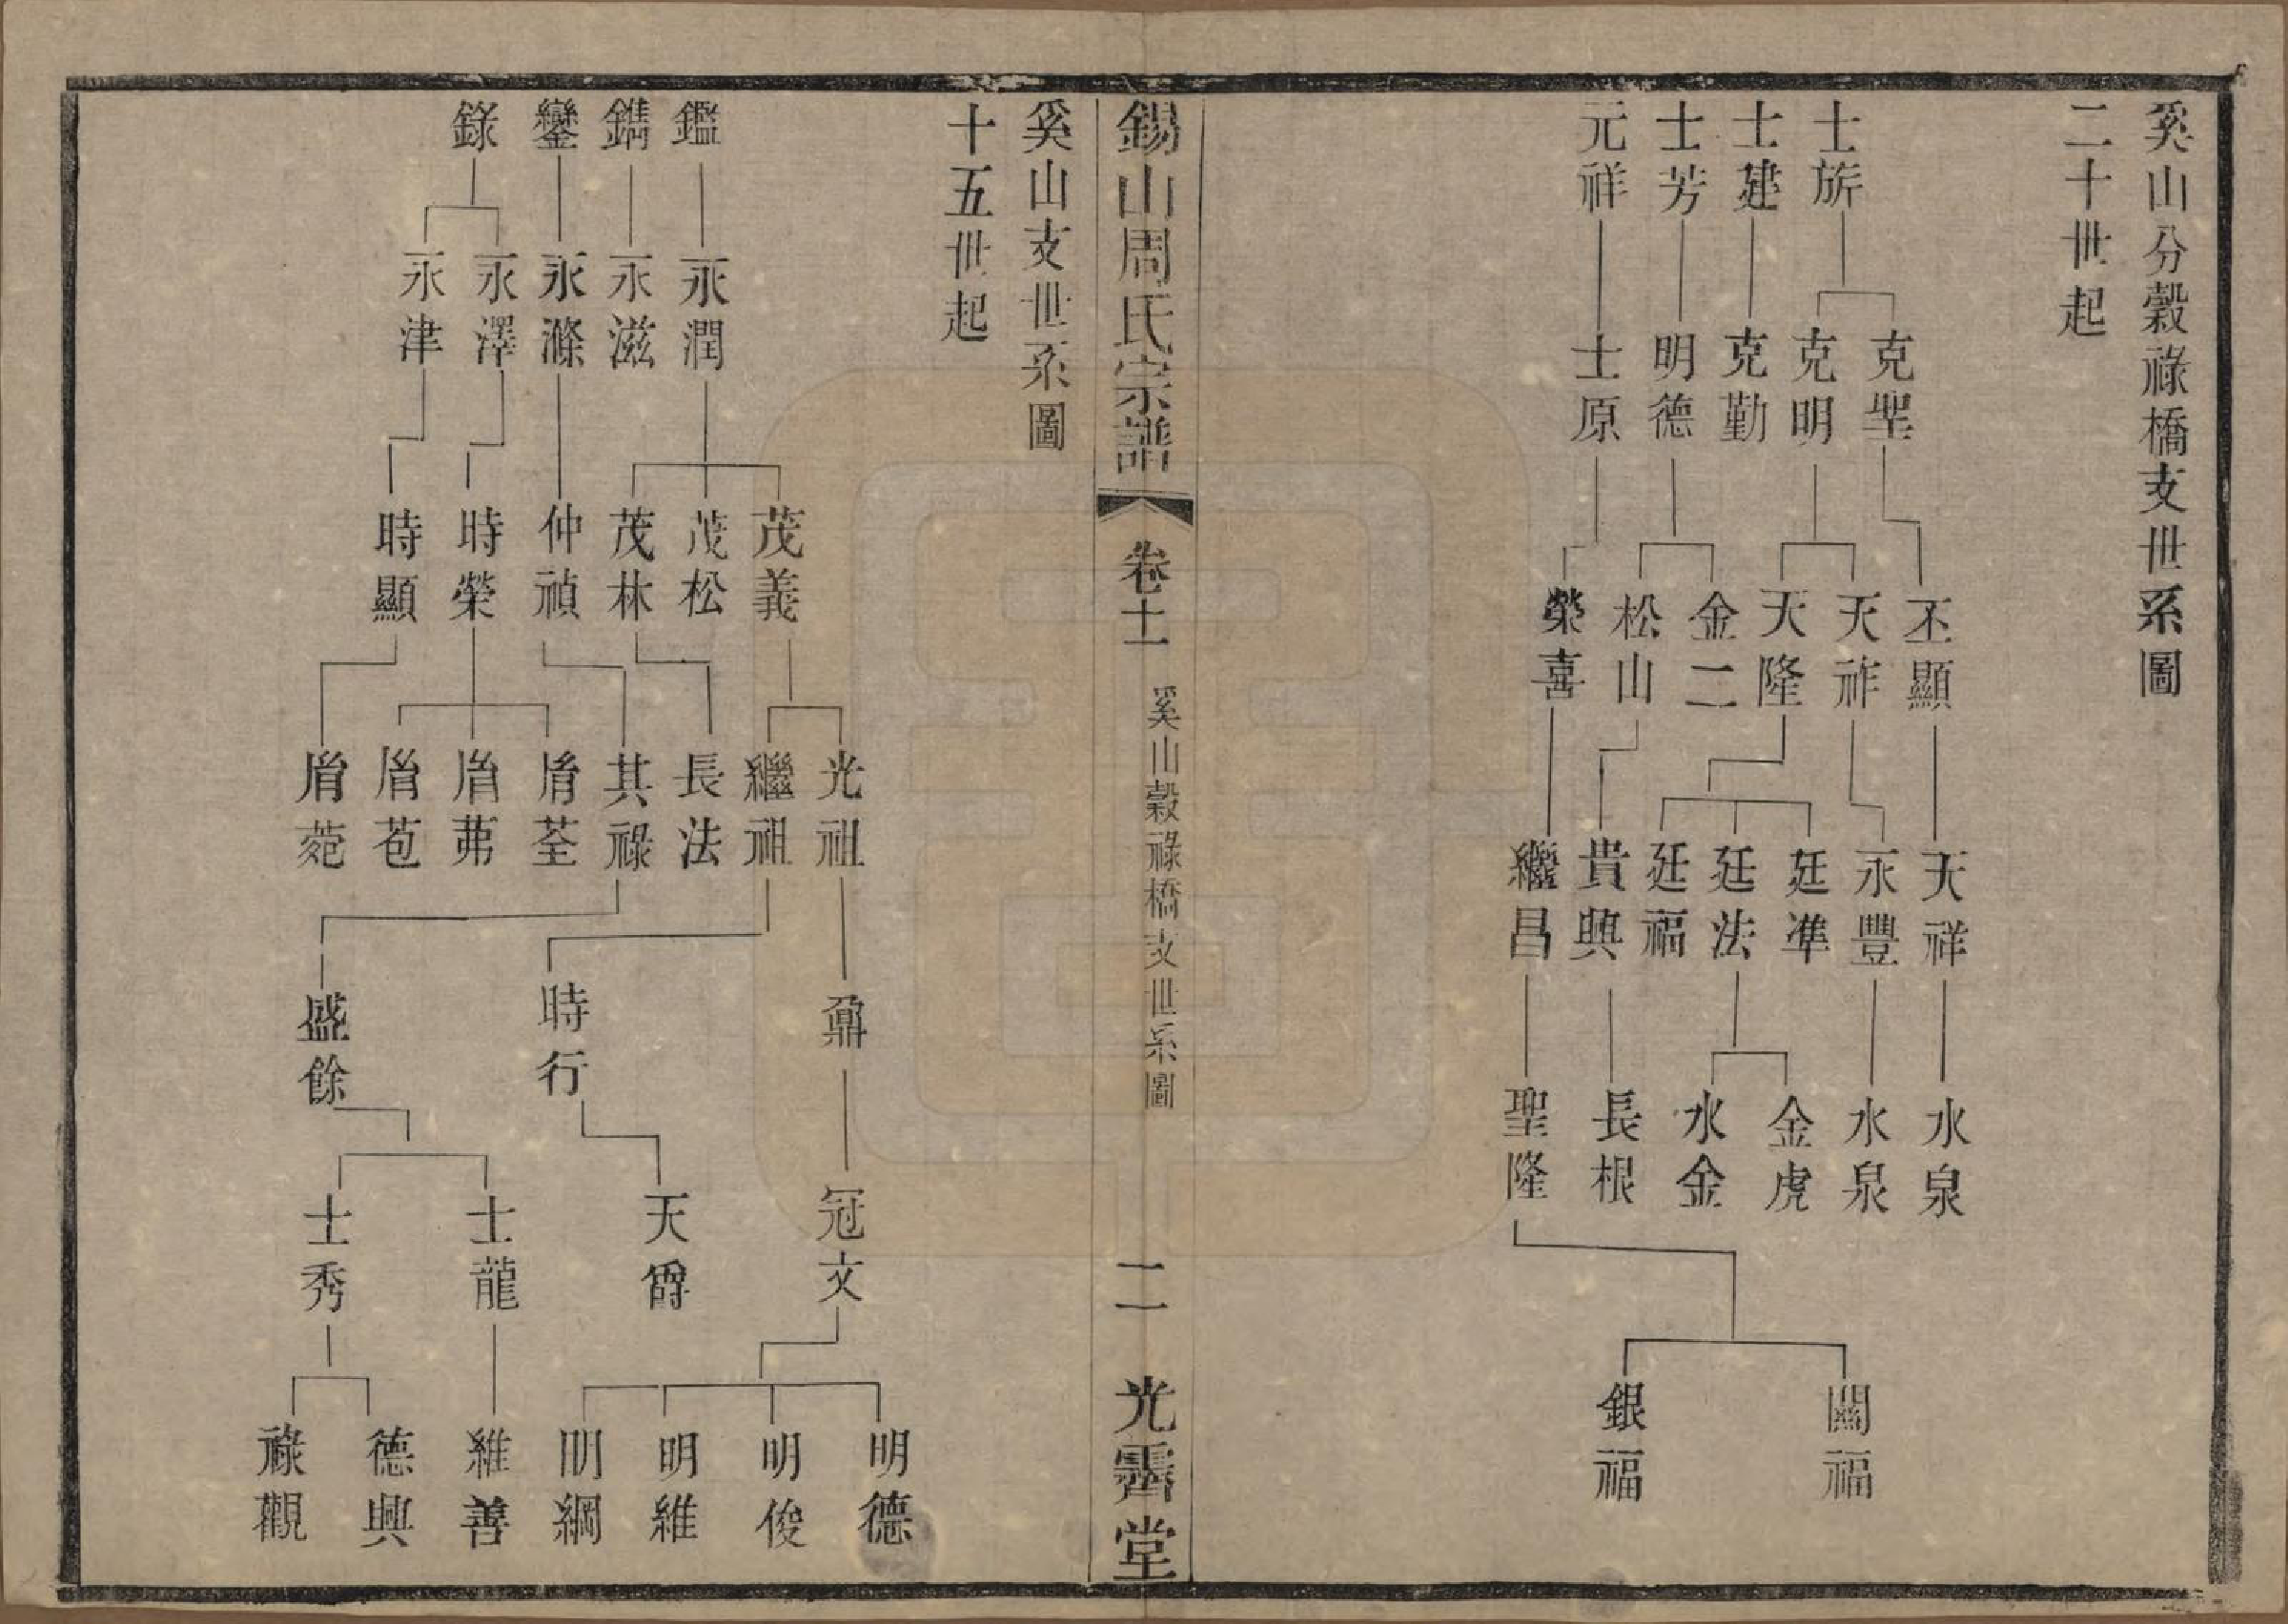 奚山分穀祿橋支世系圖
二十世起
士旂
士建
士芳
元祥
克聖
克明
克勤
明德
士原
丕顯
天祚
天隆
金二
松山
榮喜
天祥
永豐
廷準
廷法
廷福
貴興
繼昌
水泉
水泉
金虎
水金
長根
聖隆
關福
銀福
錫山周氏宗譜
卷十一
奚山穀祿橋支世系圖
二
光霽堂
奚山支世系圖
十五世起
鑑
鐫
鑾
錄
永潤
永滋
永滌
永澤
永津
茂義
茂松
茂林
仲禎
時榮
時顯
光祖
繼祖
長法
其祿
胤荃
胤茀
胤苞
胤菀
鼐
時行
盛餘
冠文
天爵
士龍
士秀
明德
明俊
明維
明綱
維善
德興
祿觀